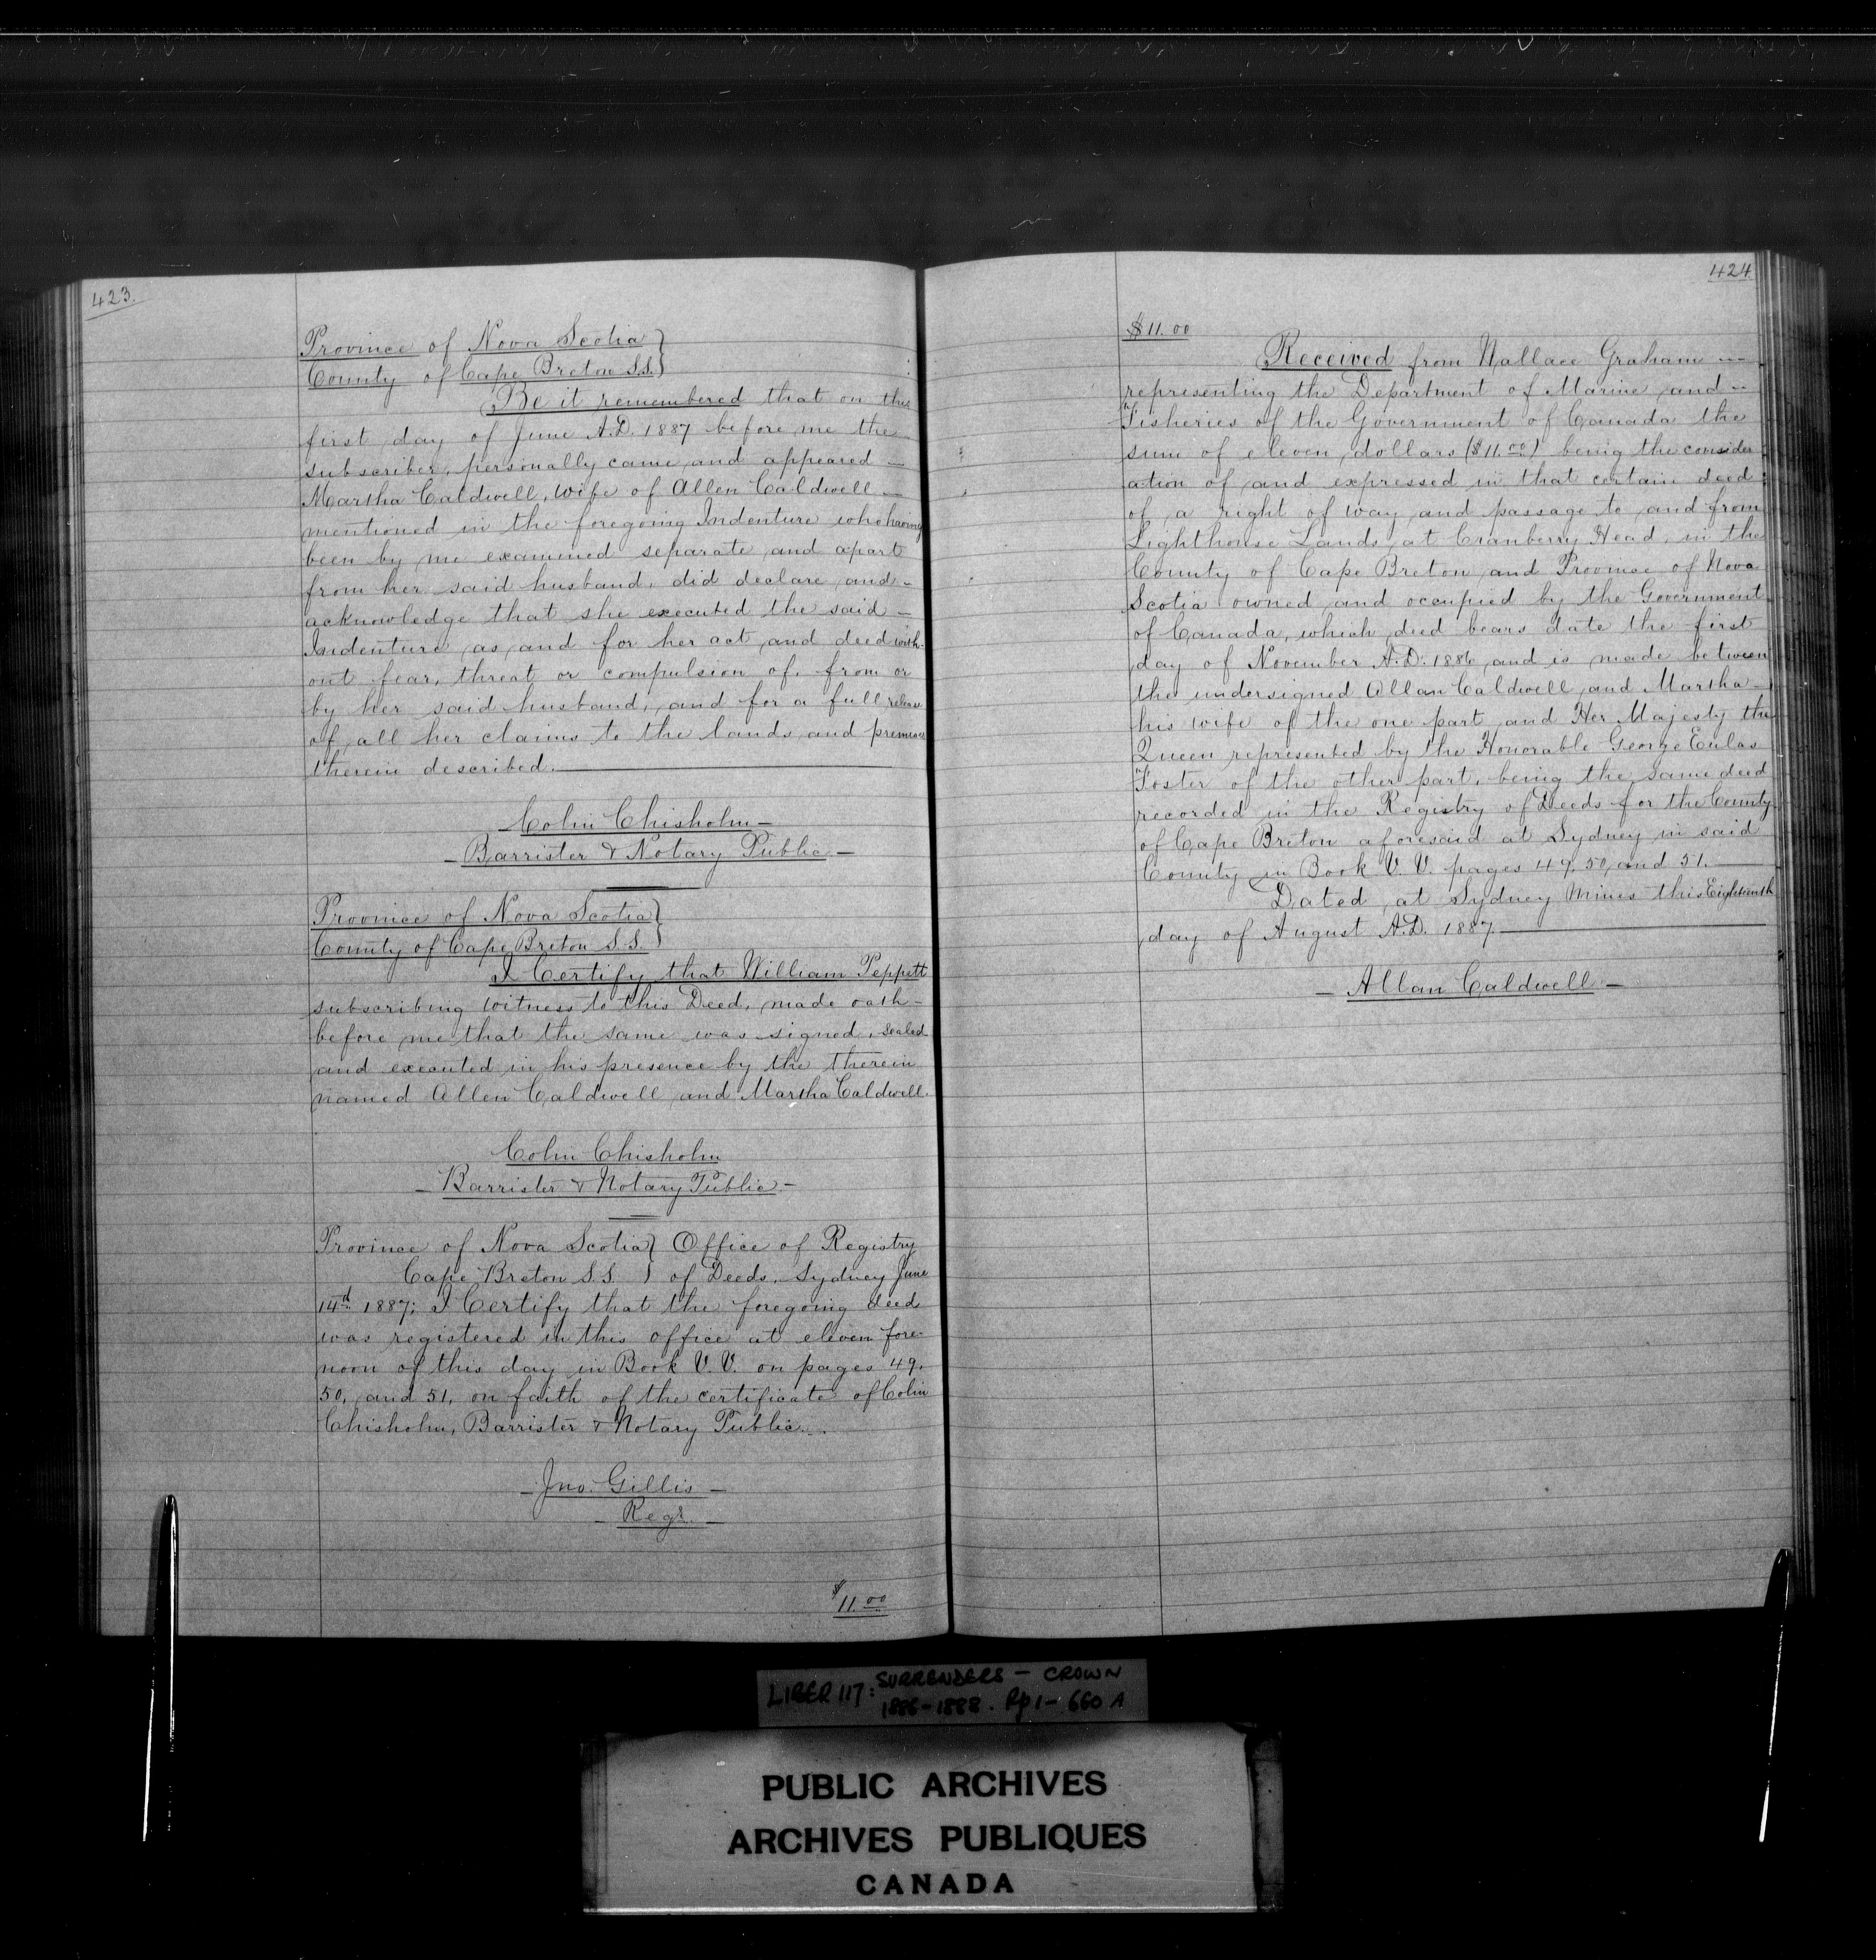 423.
Province of Nova Scotia }
County of Cape Breton S.S. }
Be it remembered that on this
first day of June A.D. 1887 before me the
subscriber, personally came and appeared —
Martha Caldwell, wife of Allen Caldwell —
mentioned in the foregoing Indenture who having
been by me examined separate and apart
from her said husband, did declare and -
acknowledge that she executed the said —
Indenture as and for her act and deed with-
out fear, threat or compulsion of, from or
by her said husband, and for a full release
of all her claims to the lands and premises
therein described. —
Colin Chisholm —
— Barrister & Notary Public —
Province of Nova Scotia }
County of Cape Breton S.S. }
I Certify that William Peppett
subscribing witness to this Deed, made oath -
before me that the same was signed, sealed
and executed in his presence by the therein
named Allen Caldwell and Martha Caldwell.
Colin Chisholm
— Barrister & Notary Public —
Province of Nova Scotia } Office of Registry
Cape Breton S.S. } of Deeds, Sydney June
14th 1887; I Certify that the foregoing deed
was registered in this office at eleven fore-
noon of this day in Book V.V. on pages 49,
50, and 51, on faith of the certificate of Colin
Chisholm, Barrister & Notary Public. -
— Jno. Gillis —
— Regr. —
$11.00
424.
$11.00
Received from Wallace Graham —
representing the Department of Marine and -
Fisheries of the Government of Canada the
sum of eleven dollars ($11.00) being the consider
ation of and expressed in that certain deed
of a right of way and passage to and from
Lighthouse Lands at Cranberry Head, in the
County of Cape Breton and Province of Nova
Scotia owned and occupied by the Government
of Canada, which deed bears date the first
day of November A.D. 1886 and is made between
the undersigned Allan Caldwell and Martha —
his wife of the one part and Her Majesty the
Queen represented by the Honorable George Eulas
Foster of the other part, being the same deed
recorded in the Registry of Deeds for the County
of Cape Breton aforesaid at Sydney in said
County in Book V.V. pages 49, 50, and 51. —
Dated at Sydney Mines this Eighteenth
day of August A.D. 1887. —
— Allan Caldwell —
LIBER 117: SURRENDERS — CROWN
1886-1888. Pp 1-660 A
PUBLIC ARCHIVES
ARCHIVES PUBLIQUES
CANADA